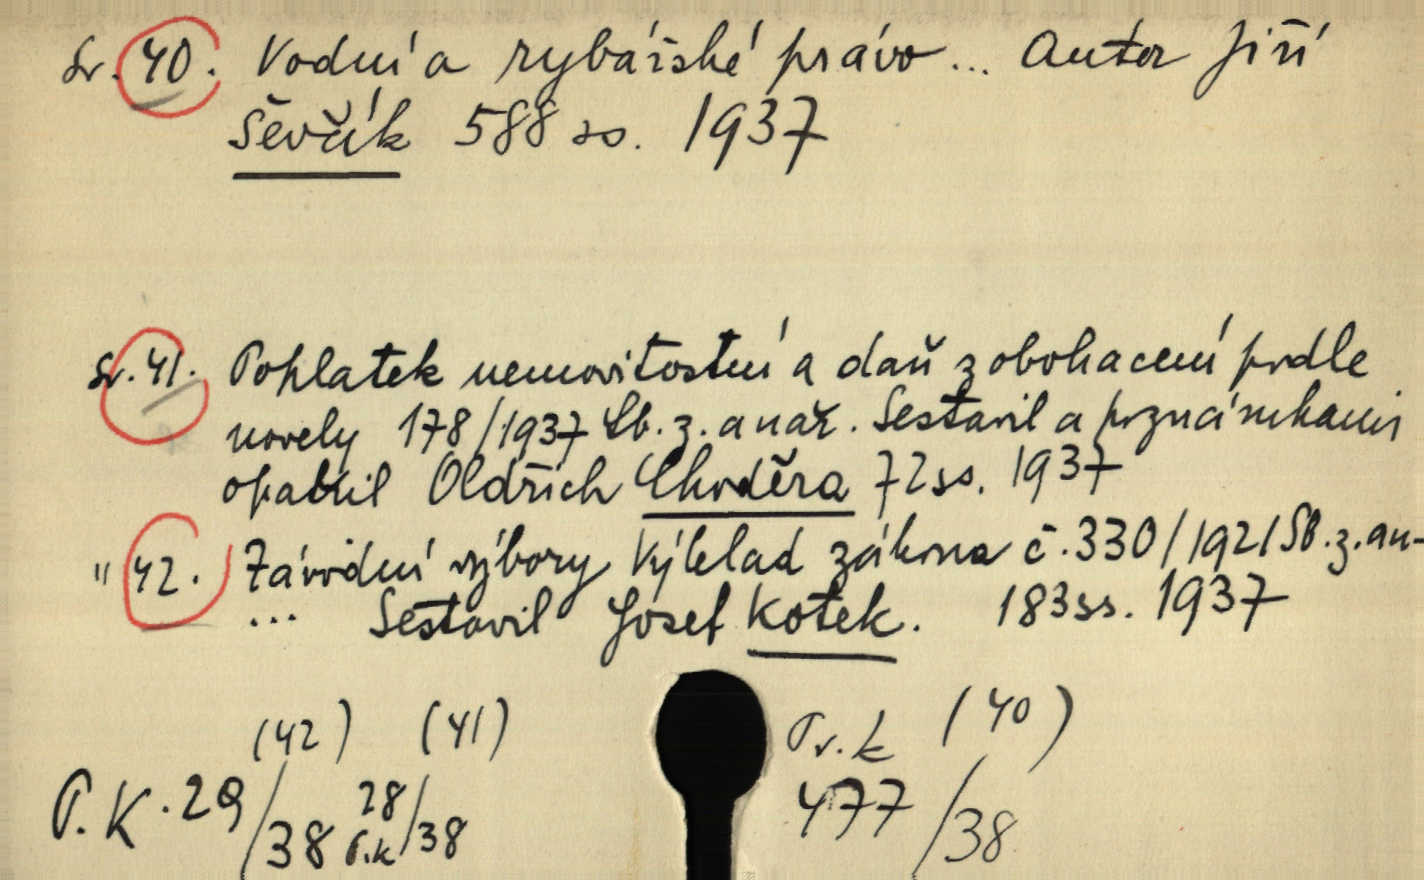 Sv. 40. Vodní a rybářské právo... Autor Jiří
Ševčík 588 ss. 1937
Sv. 41. Poplatek nemovitostní a daň z obohacení podle
novely 178/1937 Sb. z. a nař. Sestavil a poznámkami
opatřil Oldřich Chuděra 72 ss. 1937
" 42. Závodní výbory Výklad zákona č. 330/1921 Sb. z. a n-
... Sestavil Josef Kotek. 183 ss. 1937
(42) (41) Pr. k (40)
P. K. 29/38 28/38 P. k 477/38